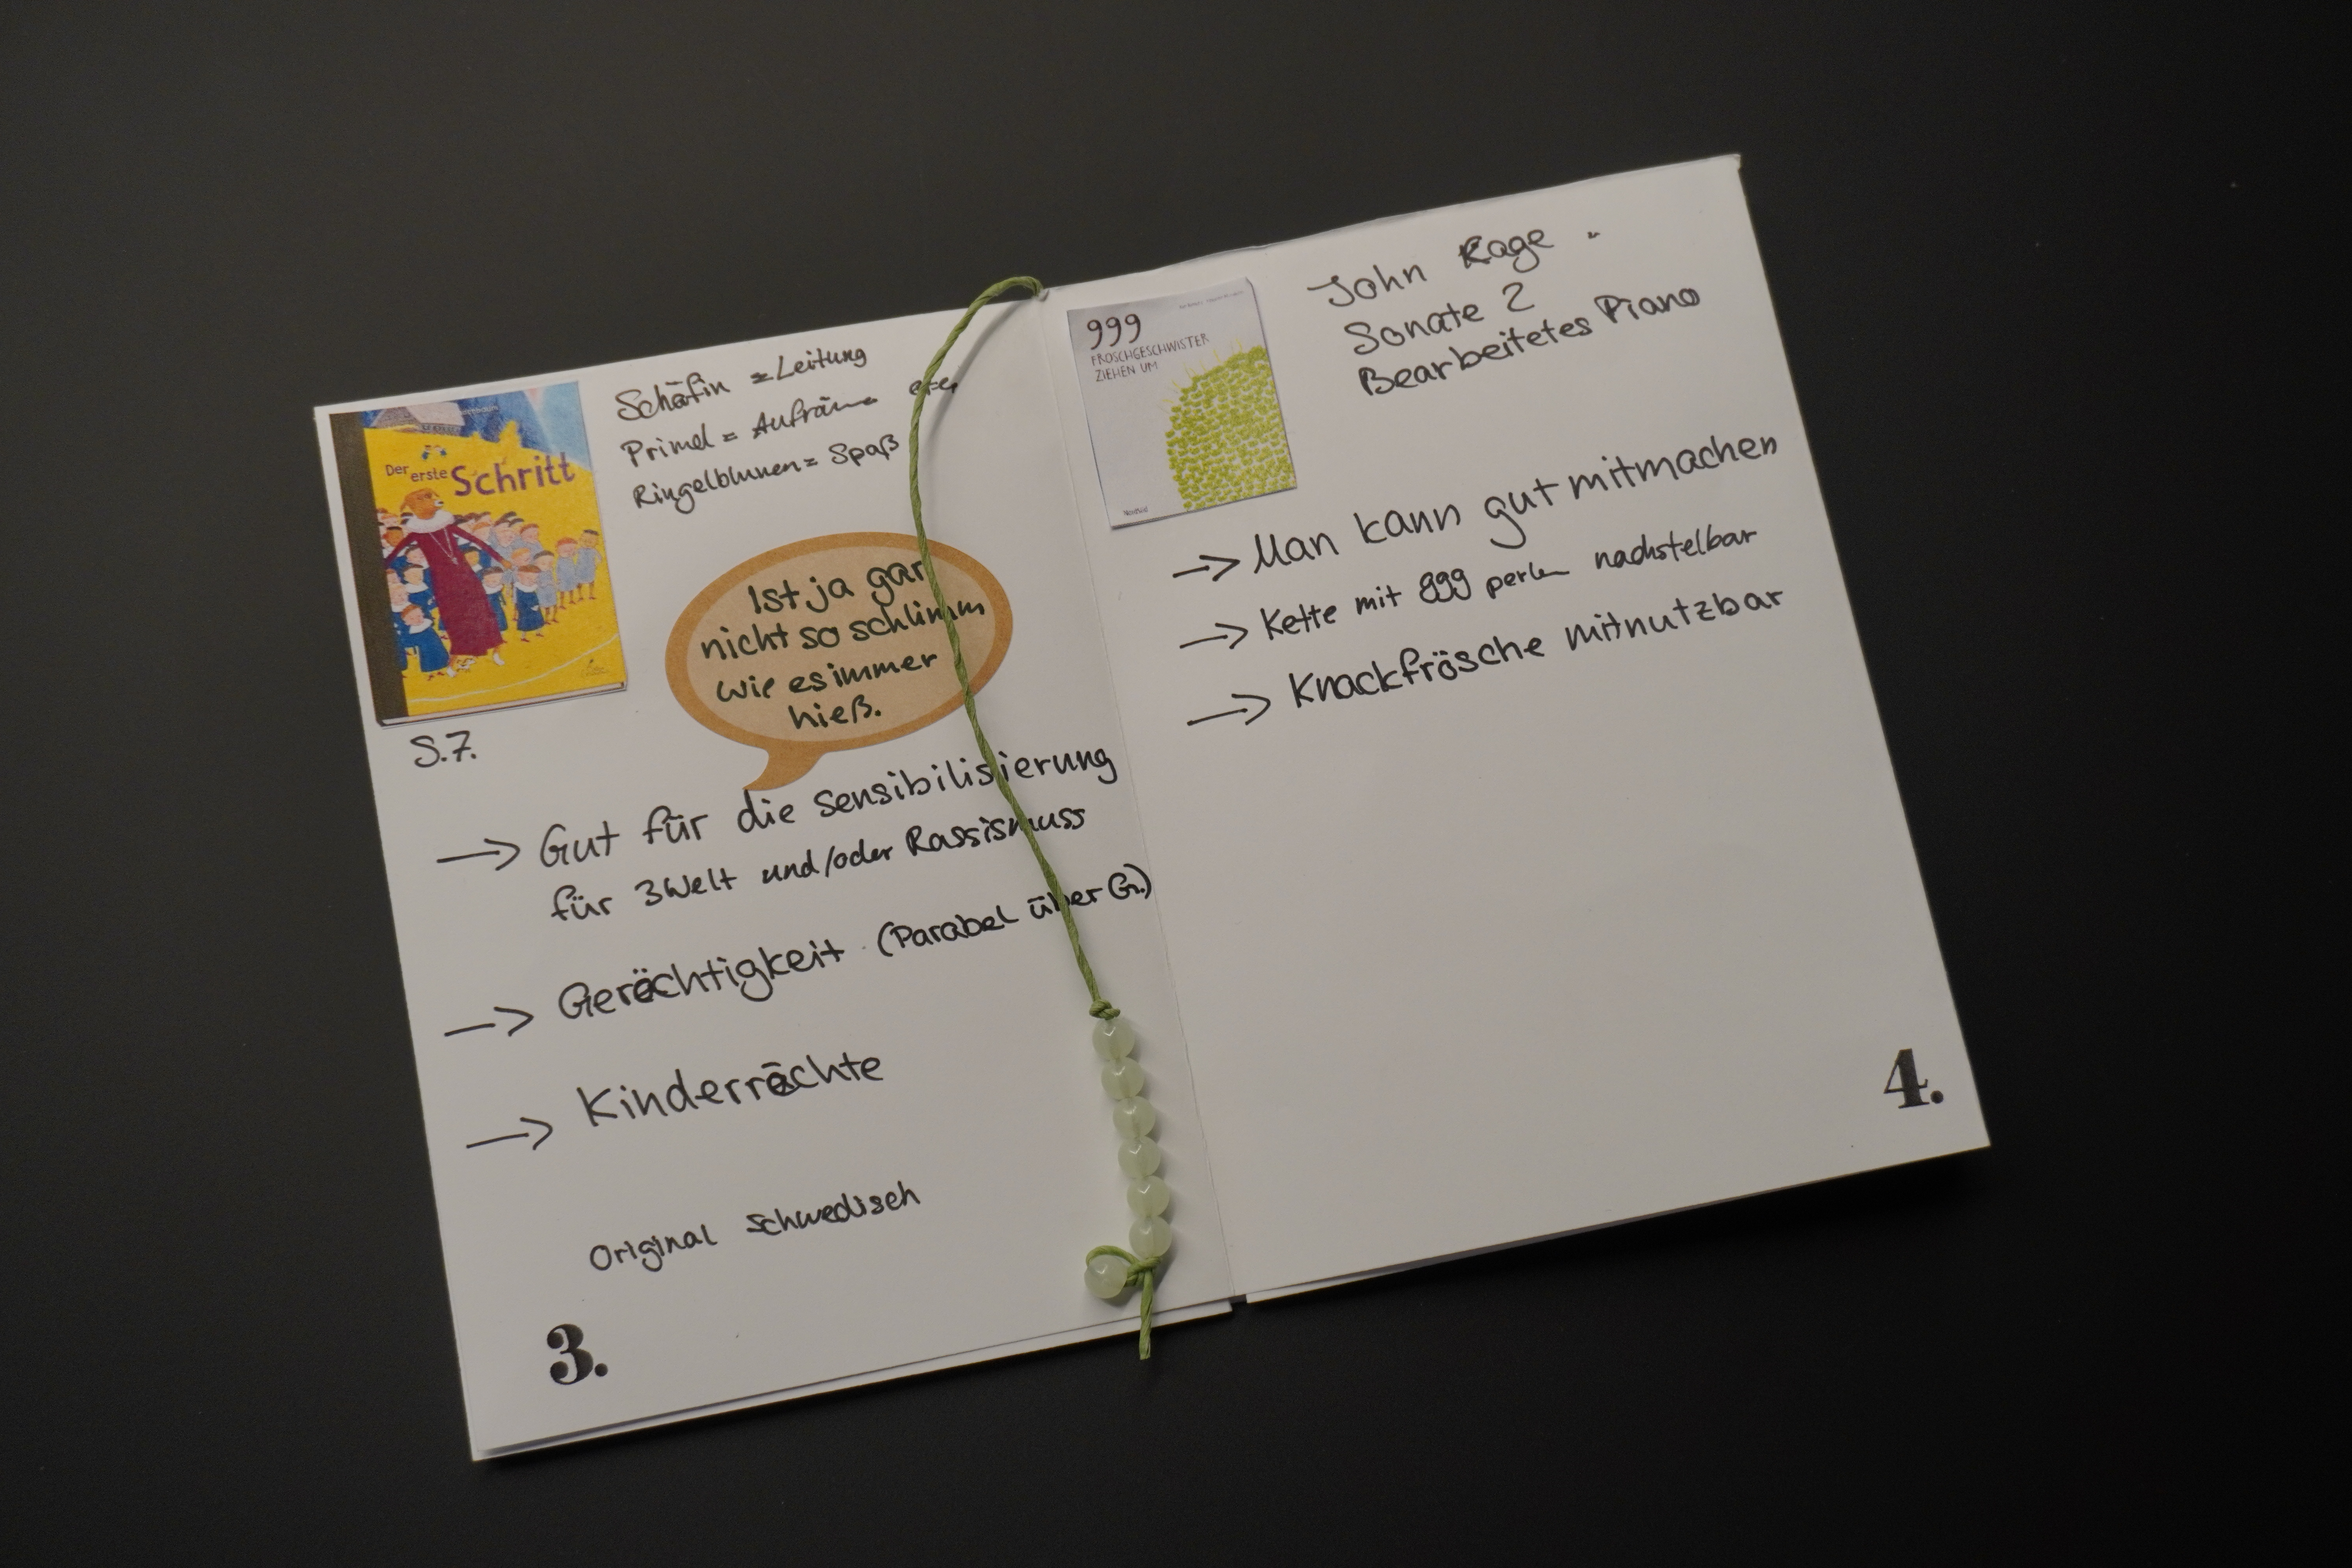 Der erste Schritt
Schäfin = Leitung
Primel = Aufräumen
Ringelblumen = Spaß
Ist ja gar
nicht so schlimm
wie es immer
hieß.
S.7.
→ Gut für die sensibilisierung
für 3Welt und/oder Rassismuss
→ Gerechtigkeit (Parabel über G.)
→ Kinderrechte
Original schwedisch
3.
999
FROSCHGESCHWISTER
ZIEHEN UM
John Kage
Sonate 2
Bearbeitetes Piano
→ Man kann gut mitmachen
→ Kette mit 999 perlen nachstelbar
→ Knackfrösche mitnutzbar
4.